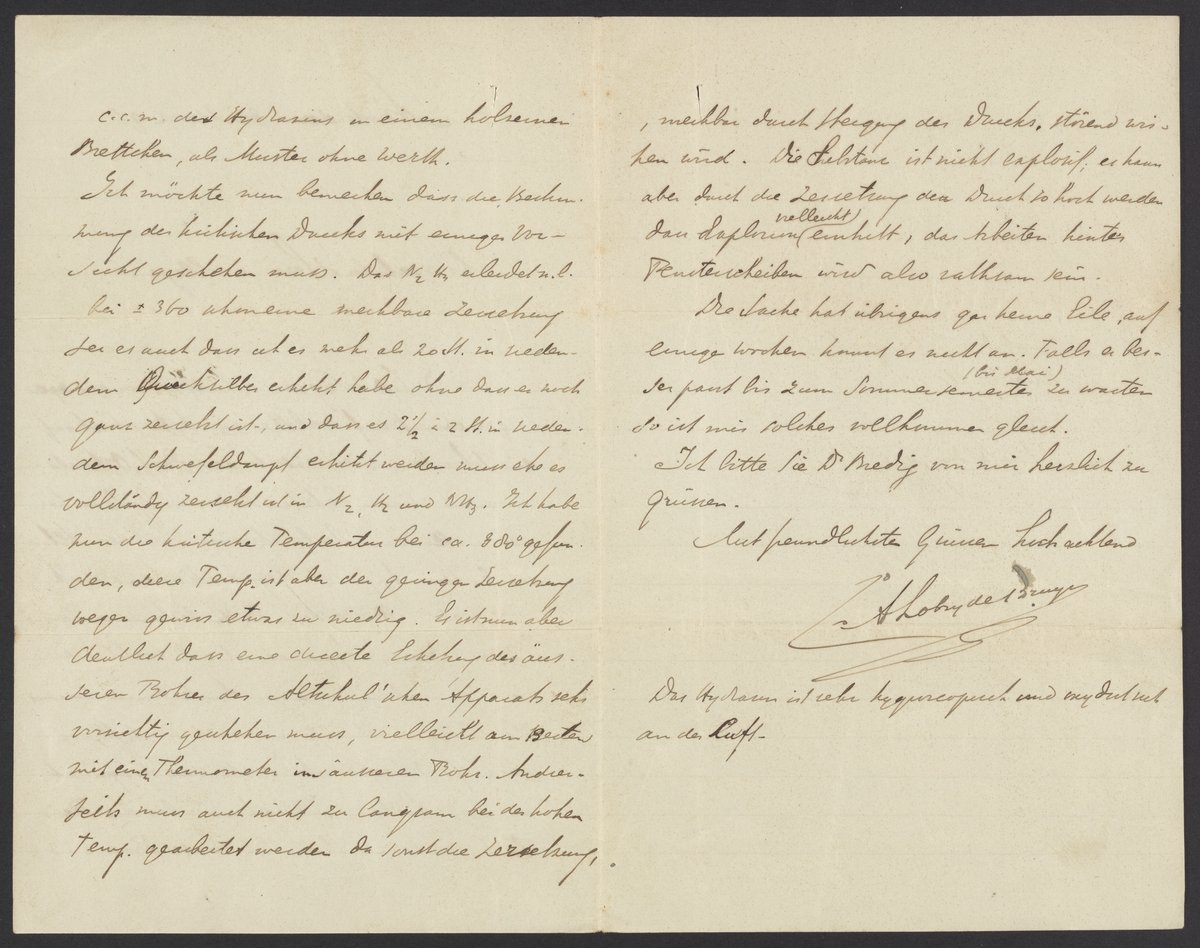 c.c.m. des Hydrasins in einem holsernen
Brettchen, als Muster ohne Werth.
Ich möchte nun bemerken dass die Bestim-
mung des kritischen Drucks mit einiger Vor-
sicht geschehen muss. Das N2H4 erleidet n.l.
bei ± 360 schon eine merkbare Zersetzung
sei es auch dass ich es mehr als 20 St. in sieden-
dem Quecksilber erhitzt habe ohne dass es noch
ganz zersetzt ist, und dass es 2½ à 2 St. in sieden-
dem Schwefeldampf erhitzt werden muss ehe es
vollständig zersetzt ist in N2, H2 und NH3. Ich habe
nun die kritische Temperatur bei ca. 380° gefun-
den, diese Temp. ist aber der geringen Zersetzung
wegen gewiss etwas zu niedrig. Es ist nun aber
deutlich dass eine directe Erhitzung des äus-
seren Rohres des Altschul'schen Apparats sehr
vorsichtig geschehen muss, vielleicht am Besten
mit einem Thermometer im äusseren Rohr. Andrer-
seits muss auch nicht zu langsam bei der hohen
Temp. gearbeitet werden da sonst die Zersetzung,
, merkbar durch Steigung des Drucks, störend wir-
ken wird. Die Substanz ist nicht explosif; es kann
aber durch die Zersetzung der Druck so hoch werden
dass Explosion vielleicht eintritt, das Arbeiten hinter
Fensterscheiben wird also rathsam sein.
Die Sache hat übrigens gar keine Eile, auf
einige Wochen kommt es nicht an. Falls es bes-
ser passt bis zum Sommersemester (bis Mai) zu warten
so ist mir solches vollkommen gleich.
Ich bitte Sie Dr Bredig von mir herzlich zu
grüssen.
Mit freundlichsten Grüssen hochachtend
CA Lobry de Bruyn
Das Hydrasin ist sehr hygroscopisch und oxydirt sich
an der Luft.